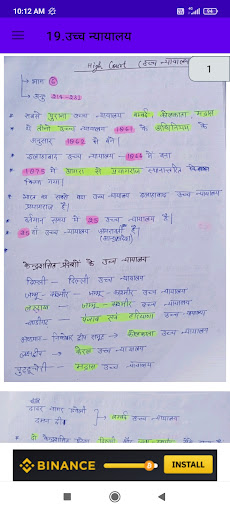 10:12 AM
19.उच्च न्यायालय
High Court (उच्च न्यायालय)
1
→ भाग 6
→ अनु० 214-232
* सबसे पुराना उच्च न्यायालय बम्बई, कोलकाता, मद्रास
* ये तीनों उच्च न्यायालय 1861 के अधिनियम के
अनुसार 1862 में बने।
* इलाहाबाद उच्च न्यायालय - में बना
* 1875 में आगरा से स्थानांतरित
किया गया।
* भारत का सबसे बड़ा उच्च न्यायालय इलाहाबाद उच्च न्यायालय
है।
* वर्तमान समय में 25 उच्च न्यायालय हैं।
* 25 वाँ उच्च न्यायालय अमरावती है।
(आन्ध्रप्रदेश)
केन्द्रशासित प्रदेशों के उच्च न्यायालय
दिल्ली - दिल्ली उच्च न्यायालय
जम्मू-कश्मीर - जम्मू-कश्मीर उच्च न्यायालय
लद्दाख - जम्मू-कश्मीर उच्च न्यायालय
चंडीगढ़ - पंजाब एवं हरियाणा उच्च न्यायालय
अंडमान - निकोबार द्वीप समूह - कोलकाता उच्च न्यायालय
लक्षद्वीप - केरल उच्च न्यायालय
पुदुचेरी - मद्रास उच्च न्यायालय
दादर नागर हवेली
दमन दीव → बम्बई उच्च न्यायालय
BINANCE
INSTALL